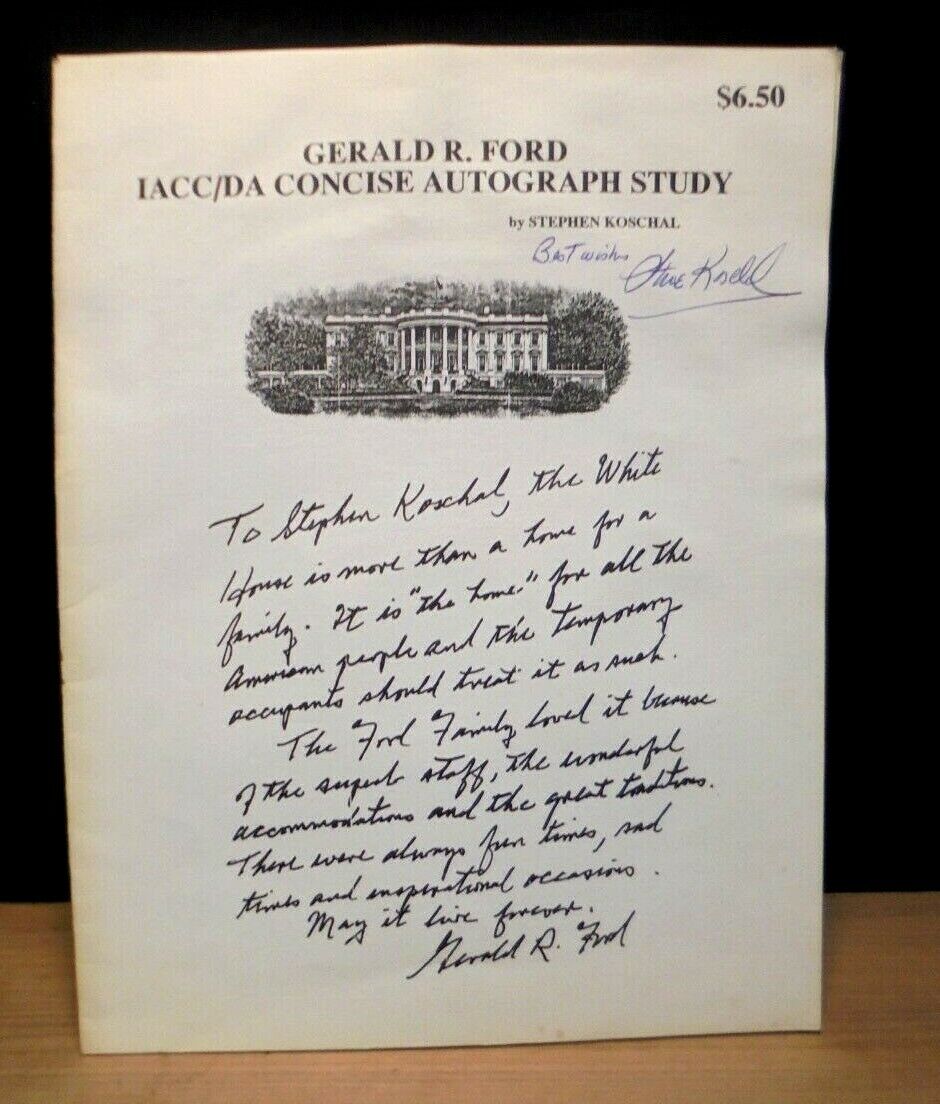 $6.50
GERALD R. FORD
IACC/DA CONCISE AUTOGRAPH STUDY
by STEPHEN KOSCHAL
Best wishes Steve Koschal
To Stephen Koschal, the White
House is more than a home for a
family. It is "the home" for all the
American people and the temporary
occupants should treat it as such.
The Ford Family loved it because
of the superb staff, the wonderful
accommodations and the great traditions.
There were always fun times, sad
times and inspirational occasions.
May it live forever.
Gerald R. Ford